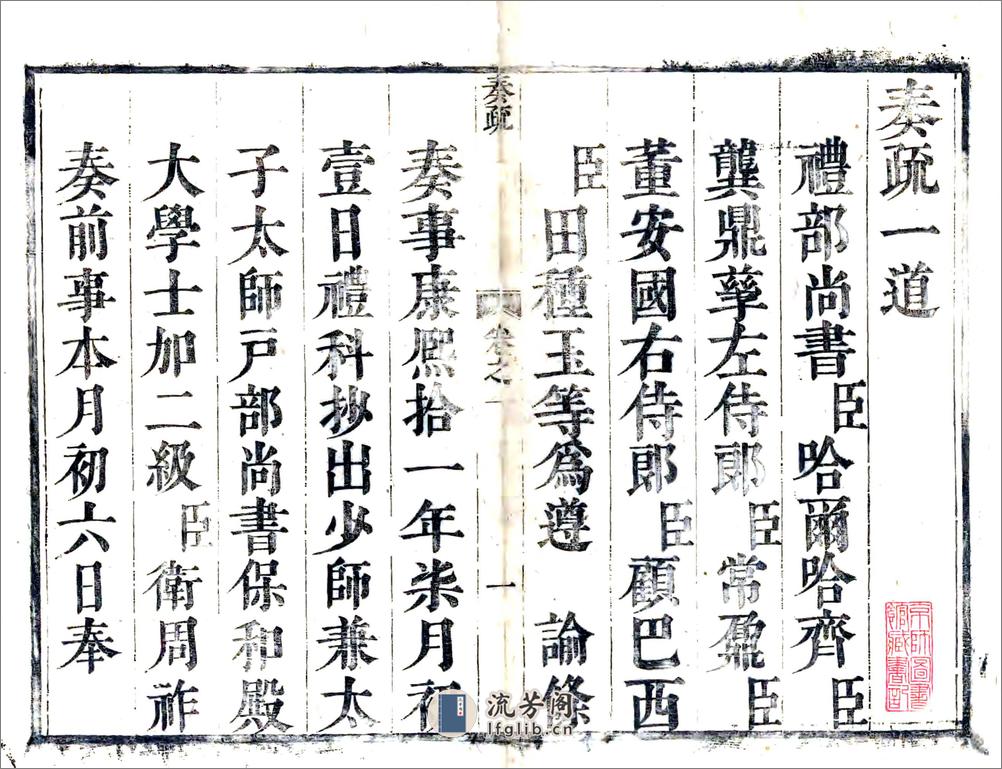 奏疏一道
禮部尚書臣哈爾哈齊臣
龔鼎孳左侍郎臣常鼐臣
董安國右侍郎臣顧巴西
臣田種玉等為遵 諭條
奏疏 卷之一 一
奏事康熙拾一年柒月初
壹日禮科抄出少師兼太
子太師戶部尚書保和殿
大學士加二級臣衛周祚
奏前事本月初六日奉
京師圖書館藏書記
流芳阁
lfglib.cn